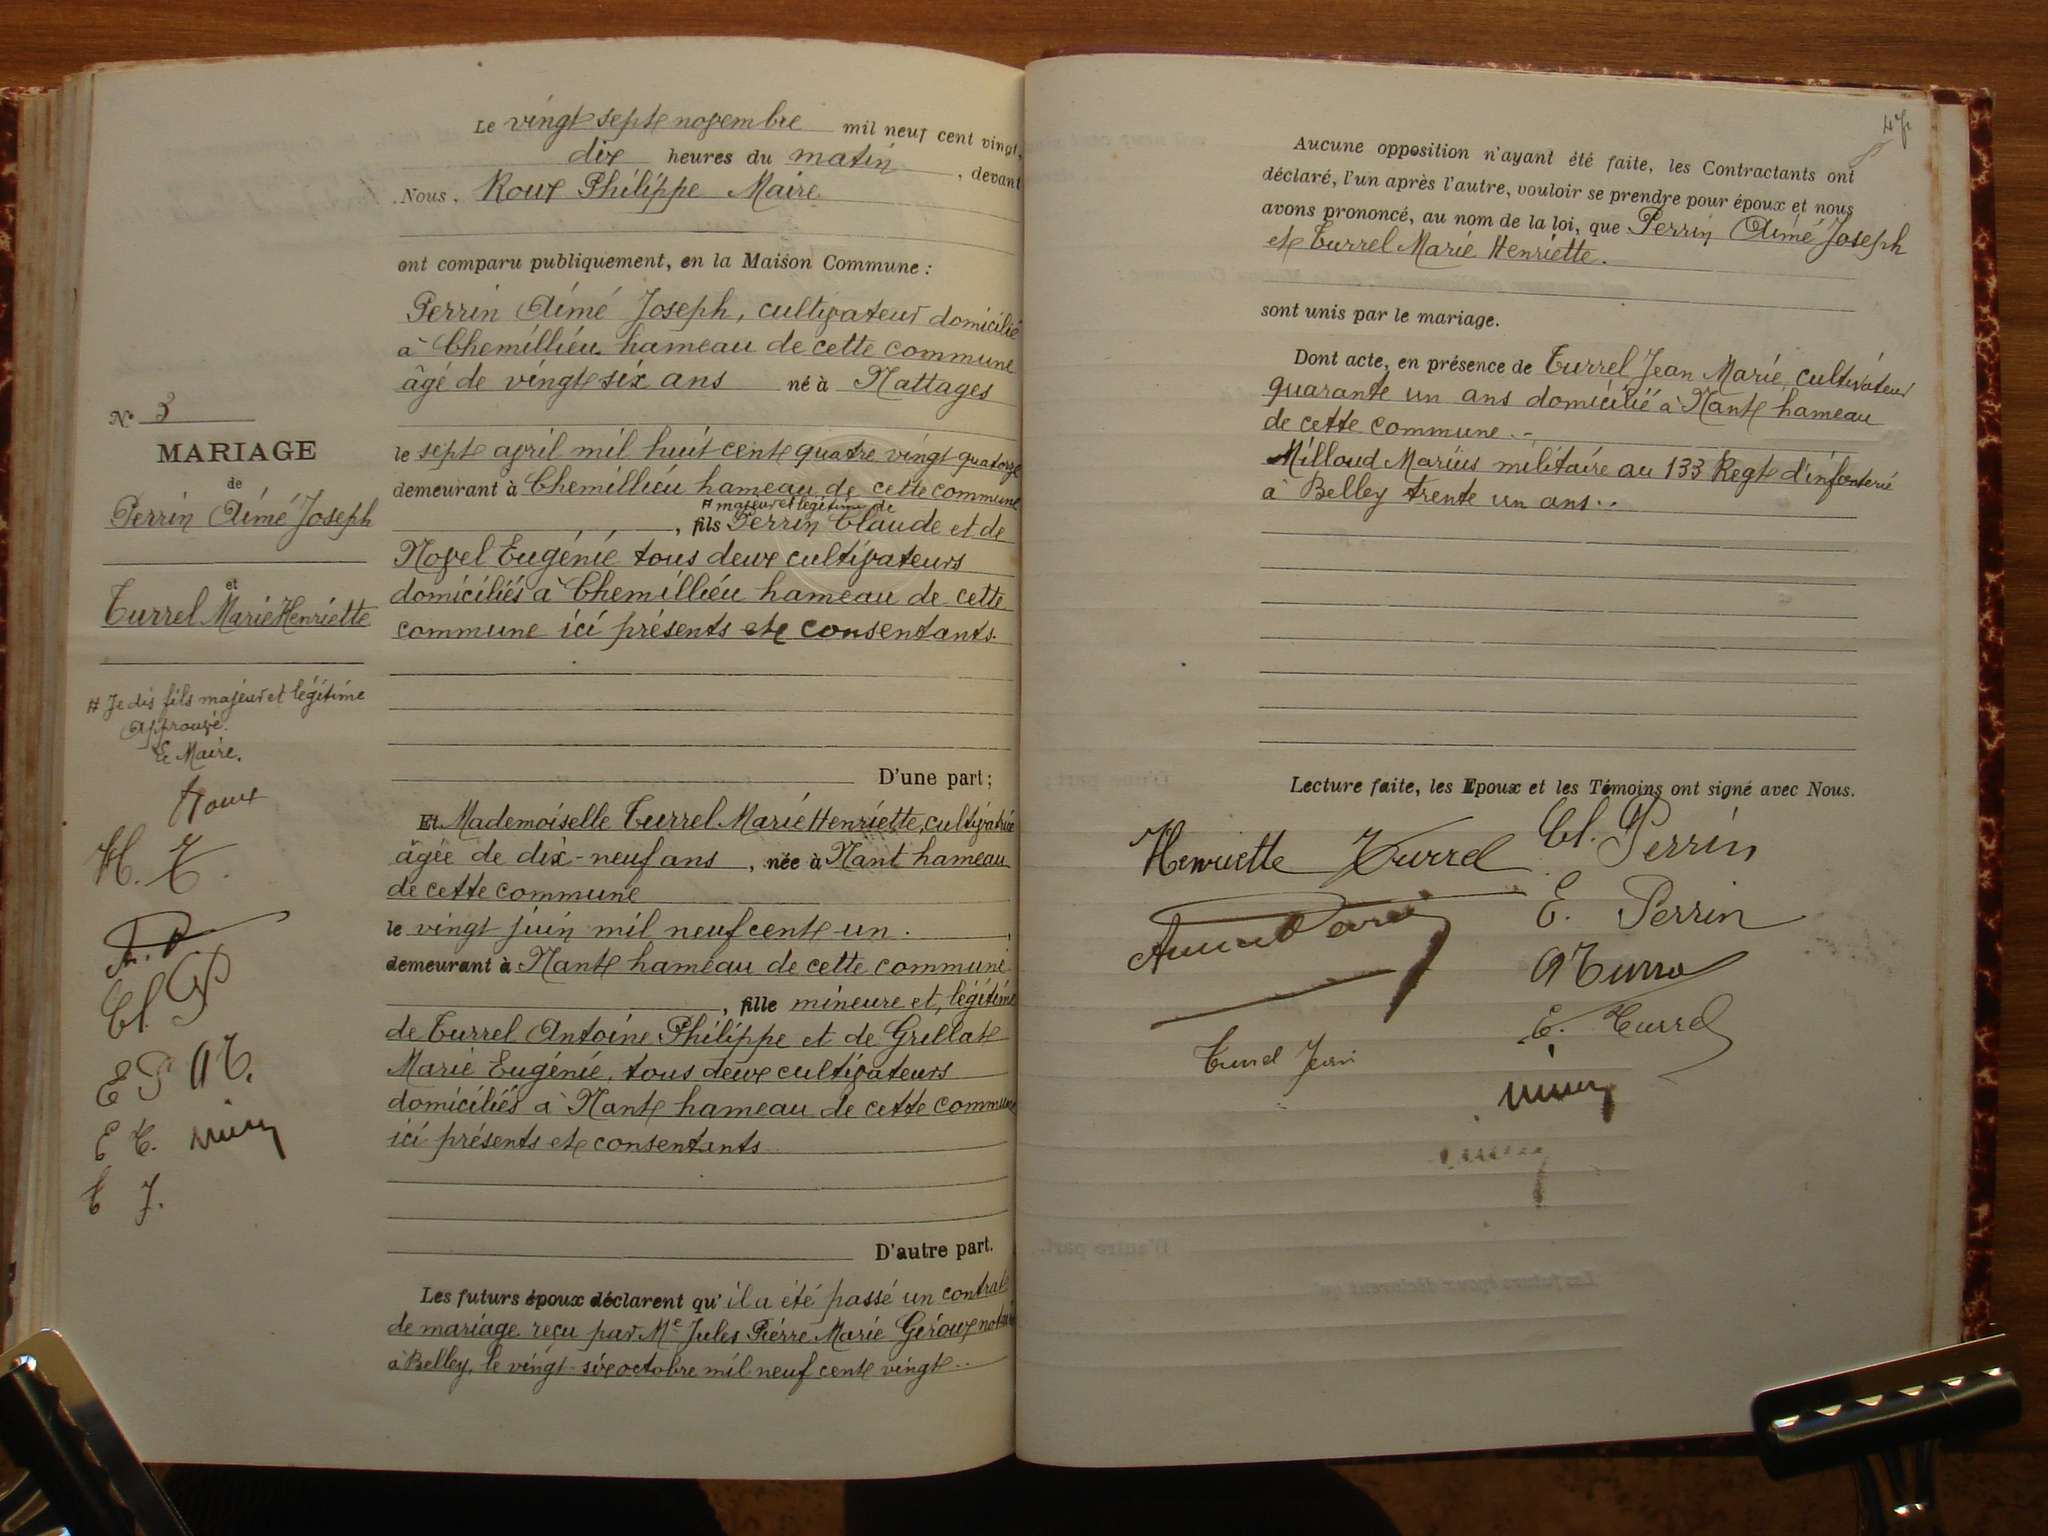 Le vingt sept novembre mil neuf cent vingt,
dix heures du matin, devant
Nous, Roux Philippe Maire
ont comparu publiquement, en la Maison Commune :
Perrin Aimé Joseph, cultivateur domicilié
à Chemillieu hameau de cette commune
âgé de vingt six ans né à Nattages
le sept avril mil huit cent quatre vingt quatorze
demeurant à Chemillieu hameau de cette commune
# majeur et légitime de
, fils Perrin Claude et de
Novel Eugénie tous deux cultivateurs
domiciliés à Chemillieu hameau de cette
commune ici présents et consentants.
D'une part ;
Et Mademoiselle Turrel Marie Henriette, cultivatrice
âgée de dix-neuf ans, née à Nant hameau
de cette commune
le vingt juin mil neuf cent un.
demeurant à Nant hameau de cette commune
, fille mineure et légitime
de Turrel Antoine Philippe et de Grillat
Marie Eugénie, tous deux cultivateurs
domiciliés à Nant hameau de cette commune
ici présents et consentants
D'autre part.
Les futurs époux déclarent qu'il a été passé un contrat
de mariage reçu par Me Jules Pierre Marie Giroux notaire
à Belley, le vingt-six octobre mil neuf cent vingt..
No 3
MARIAGE
de
Perrin Aimé Joseph
et
Turrel Marie Henriette
# Je dis fils majeur et légitime
Approuvé.
Le Maire.
Roux
H. T.
A. P
Cl. P
E P A T.
E T.
T J.
47
Aucune opposition n'ayant été faite, les Contractants ont
déclaré, l'un après l'autre, vouloir se prendre pour époux et nous
avons prononcé, au nom de la loi, que Perrin Aimé Joseph
et Turrel Marie Henriette.
sont unis par le mariage.
Dont acte, en présence de Turrel Jean Marie, cultivateur
quarante un ans domicilié à Nant hameau
de cette commune.-
Milloud Marius militaire au 133 Regt d'infanterie
à Belley trente un ans..
Lecture faite, les Epoux et les Témoins ont signé avec Nous.
Henriette Turrel Cl. Perrin
E. Perrin
A Turrel
E. Turrel
Turrel Jean